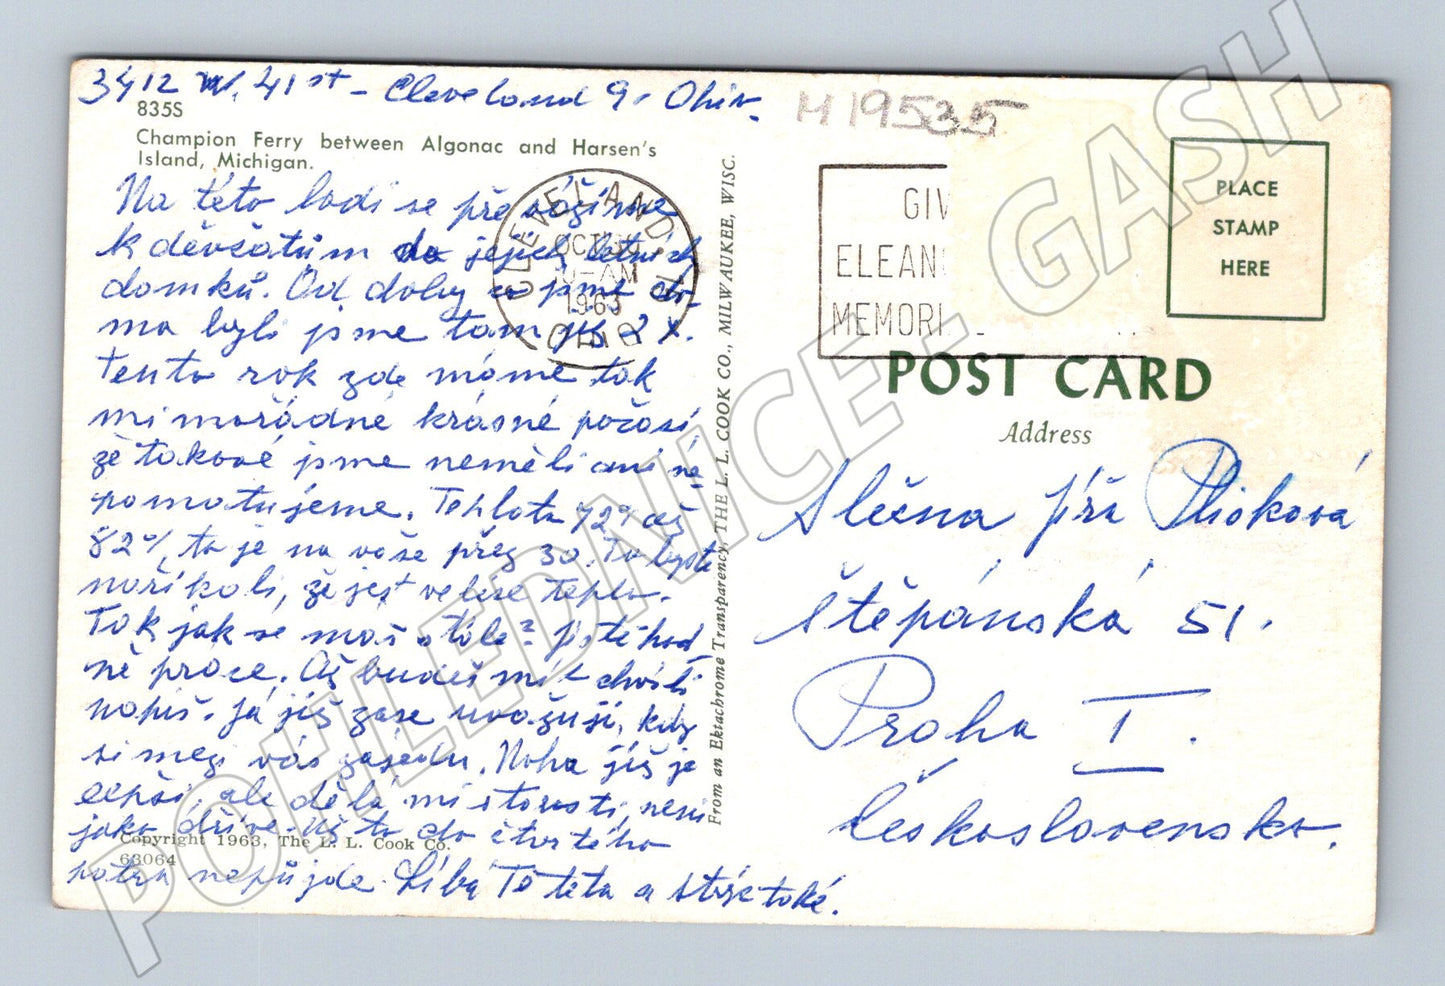 3412 W. 41st - Cleveland 9. Ohio.
M 19535
835S
Champion Ferry between Algonac and Harsen's
Island, Michigan.
Na této lodi se převážíme
k děvčatům do jejich letních
domků. Od doby co jsme do-
ma byli jsme tam již 2x.
Tento rok zde máme tak
mimořádně krásné počasí,
že takové jsme neměli ani ne
pamatujeme. Teplota 72° až
82°, to je na vaše přes 30. To byste
naříkali, že jest velké teplo.
Tak jak se máš stále? Jistě hod
ně práce. Až budeš mít chvíli
napiš. Já již zase uvažuji, kdy
si mezi vás zajedu. Noha již je
lepší, ale dělá mi starosti, není
jako dříve. Už to do čtvrtého
patra nepůjde. Líbá Tě teta a strýc také.
Copyright 1963, The L. L. Cook Co.
63064
CLEVELAND
OCT
AM
1963
OHIO
From an Ektachrome Transparency, THE L. L. COOK CO., MILWAUKEE, WISC.
GIV
ELEAN
MEMORI
PLACE
STAMP
HERE
POST CARD
Address
Slečna Jiřa Plisková
Štěpánská 51.
Praha I.
Československo.
POHLEDNICE - GASH